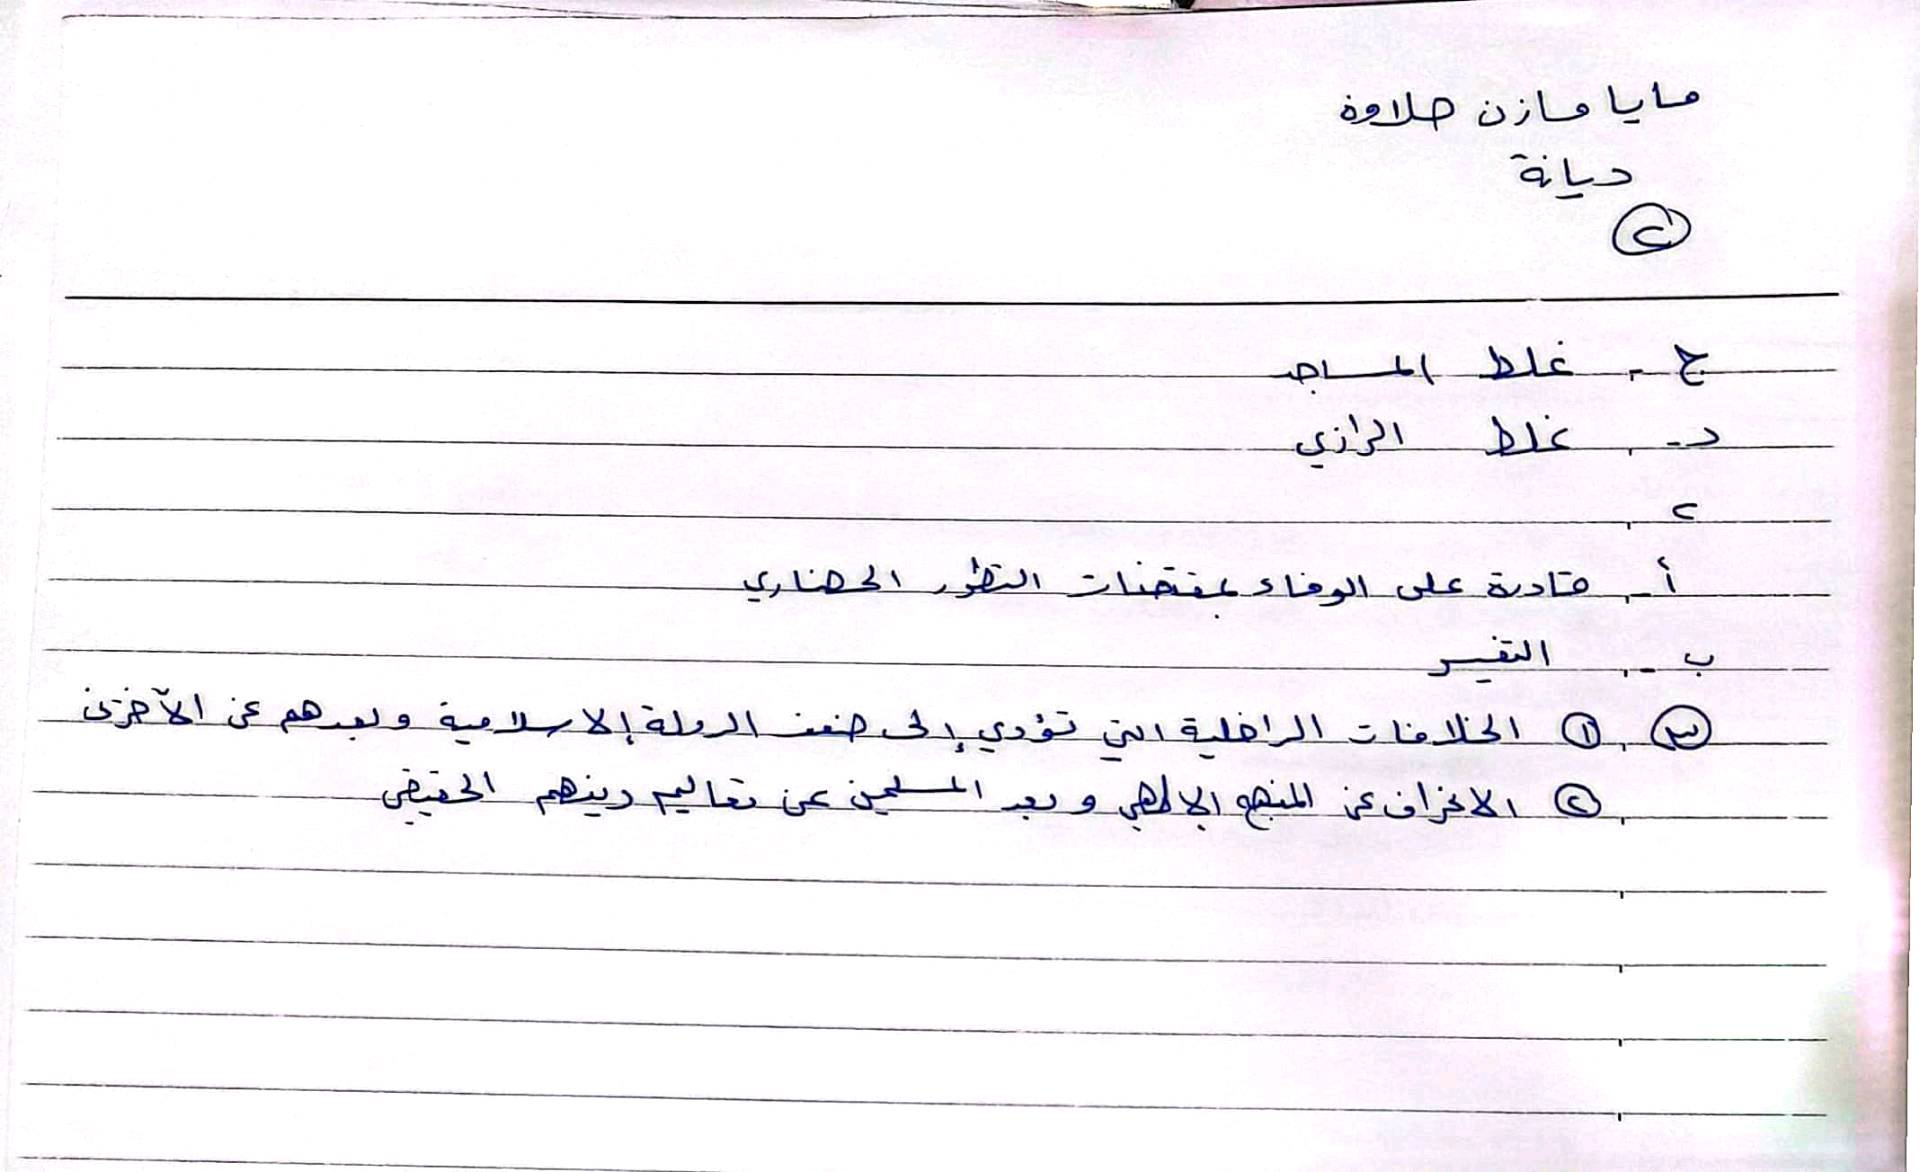 مايا مازن حلاوة
ديانة
٢
ج - غلط المساجد
د - غلط الرازي
٢
أ - قادرة على الوفاء بمقتضيات التطور الحضاري
ب - التفسير
٣ ١ الخلافات الداخلية التي تؤدي إلى ضعف الدولة الإسلامية وبعدهم عن الآخرين
٢ الانحراف عن المنهج الإلهي وبعد المسلمين عن تعاليم دينهم الحقيقي